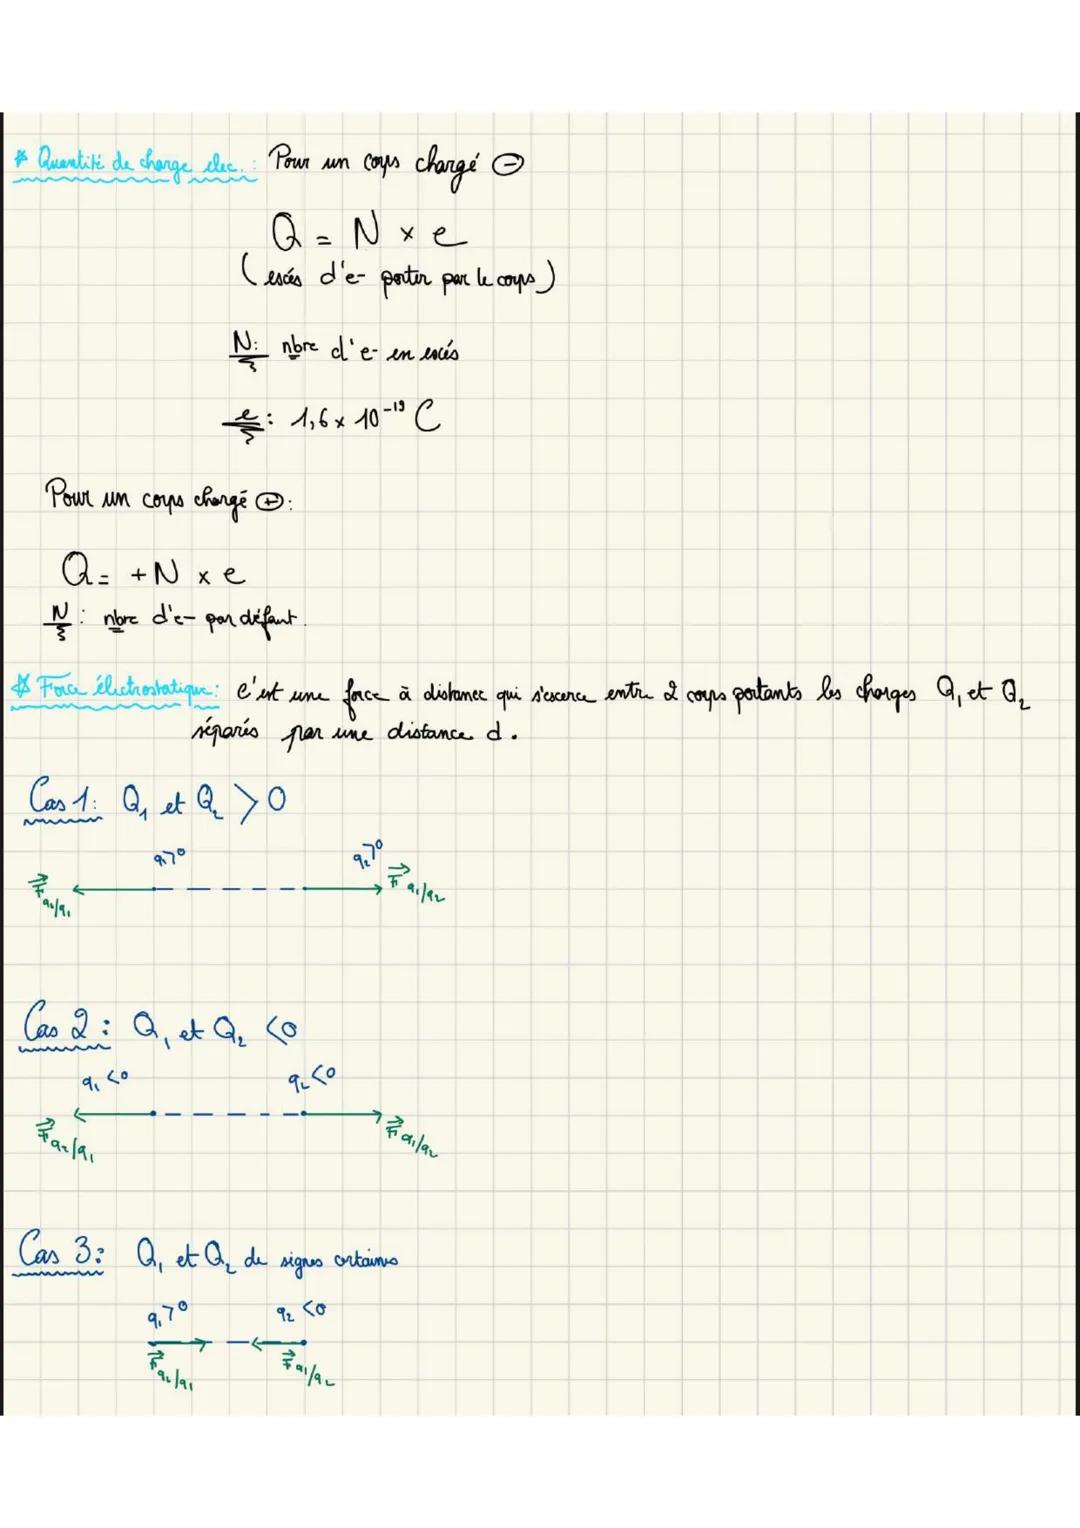 * Quantité de charge elec. : Pour un corps chargé ⊖
Q = N × e
(escés d'e- porter par le corps)
N: nbre d'e- en escés
e : 1,6 × 10⁻¹⁹ C
Pour un corps chargé ⊕ :
Q = + N × e
N : nbre d'e- par défaut.
* Force électrostatique : C'est une force à distance qui s'escerce entre 2 corps portants les charges Q₁ et Q₂
séparés par une distance d.
Cas 1 : Q₁ et Q₂ > 0
q₁>0 q₂>0
F q₂/q₁ F q₁/q₂
Cas 2 : Q₁ et Q₂ <0
q₁ <0 q₂ <0
F q₂/q₁ F q₁/q₂
Cas 3 : Q₁ et Q₂ de signes
q₁>0 q₂ <0
F q₂/q₁ F q₁/q₂